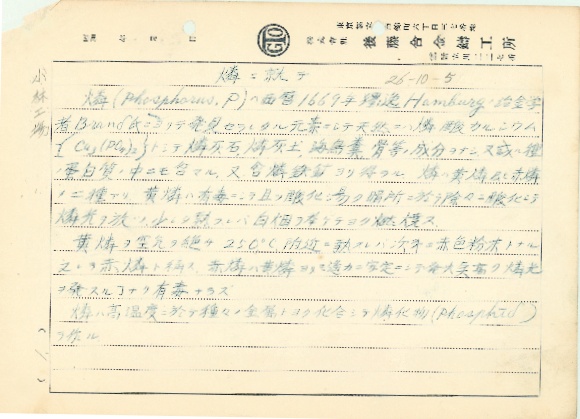 株式會社 後藤合金鋳工所
GTO
小林工場
燐ニ就テ 26-10-5
燐(Phosphorus, P)ハ西暦1669年獨逸Hamburgノ冶金学
者Brand氏ニヨリテ発見セラレタル元素ニシテ天然ニハ燐酸カルシウム
トシテ燐灰石燐灰土、海鳥糞、骨等ノ成分ヲナシ又或ル種
ノ蛋白質ノ中ニモ含マル、又含燐鉄鉱ヨリ得ラル 燐ハ黄燐ト赤燐
ノ二種アリ、黄燐ハ有毒ニシテ且ツ酸化シ易ク暗所ニ於テ除々ニ酸化シテ
燐光ヲ放ツ、少シク熱スレバ白烟ヲ挙ゲテヨク燃焼ス
黄燐ヲ空気ヲ絶チ250°C附近ニ熱スレバ漸次ニ赤色粉末トナル
之レヲ赤燐ト称ス、赤燐ハ黄燐ヨリモ遥カニ安定ニシテ発火点高ク燐光
ヲ發スルコトナク有毒ナラズ
燐ハ高温度ニ於テ種々ノ金属トヨク化合シテ燐化物(Phosphid)
ヲ作ル